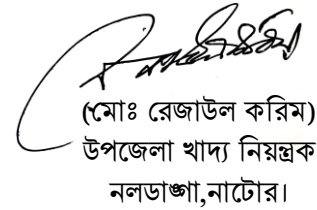 (মোঃ রেজাউল করিম)
উপজেলা খাদ্য নিয়ন্ত্রক
নলডাঙ্গা,নাটোর।